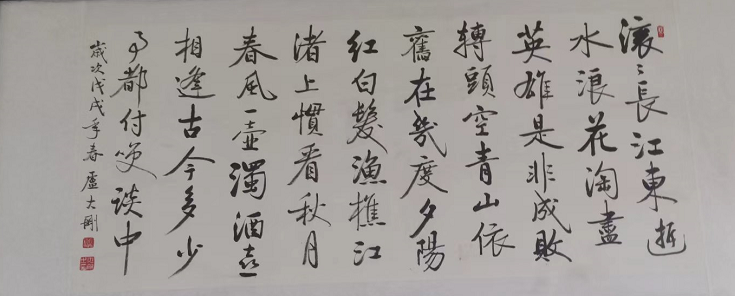 滚〻長江東逝
水浪花淘盡
英雄是非成敗
轉頭空青山依
舊在幾度夕陽
紅白髮漁樵江
渚上慣看秋月
春風一壺濁酒喜
相逢古今多少
事都付笑談中
歲次戊戌年春盧大剛